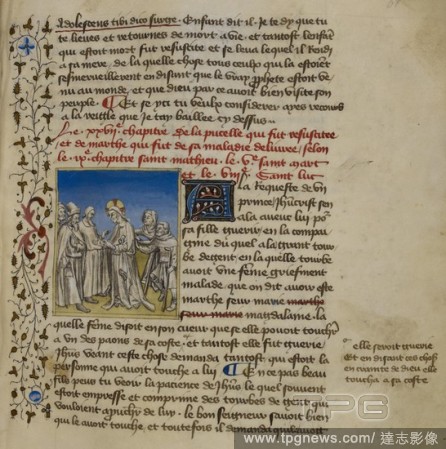 Adolescens tibi dico surge. Enfant dit il. Je te dy que tu
te lieves et retournes de mort a vie. et tantost lenfant
qui estoit mort fut resuscite et se leva lequel il rendi
a sa mere. de la quelle chose tous ceulx qui la estoiẽt
sesmerveillerent en disant que le vray prophete estoit ve
nu au monde. et que dieu par ce avoit bien visite son
peuple. Et se yci tu veulx considerer ayes recours
a la reigle que jay baillee cy dessus
Le xxvij chapitre. De la pucelle qui fut resuscitee
et de marthe qui fut de sa maladie delivree. selon
le ix chapitre saint mathieu. le v saint marc
et le viij saint luc
A la Requeste de un
prince Jhũcrist sen
ala avecques luy põ
sa fille guerir. en la compai
gnie du quel a la grant tour
be de gent. en la quelle tourbe
avoit une fẽme griefment
malade. que on dit avoir este
marthe seur marie marthe
seur marie magdalaine. la
quelle fẽme disoit en son cueur que se elle povoit touchr̃
a un des paons de sa coste. et tantost elle fut guerie
Jhũs veant ceste chose demanda tantost. qui estoit la
personne qui avoit touche a luy En ce pas beau
filz peus tu veoir la pacience de Jhũs le quel souvent
estoit empresse et comprime des tourbes de gent qui
vouloient aprouchier de luy. le bon seigneur savoit bien
qui le avoit touche. et toutefois il demanda
elle seroit guerie
Et en disant ces choses
en crainte de dieu elle
toucha a sa coste
TPG
www.tpgnews.com / 達志影像